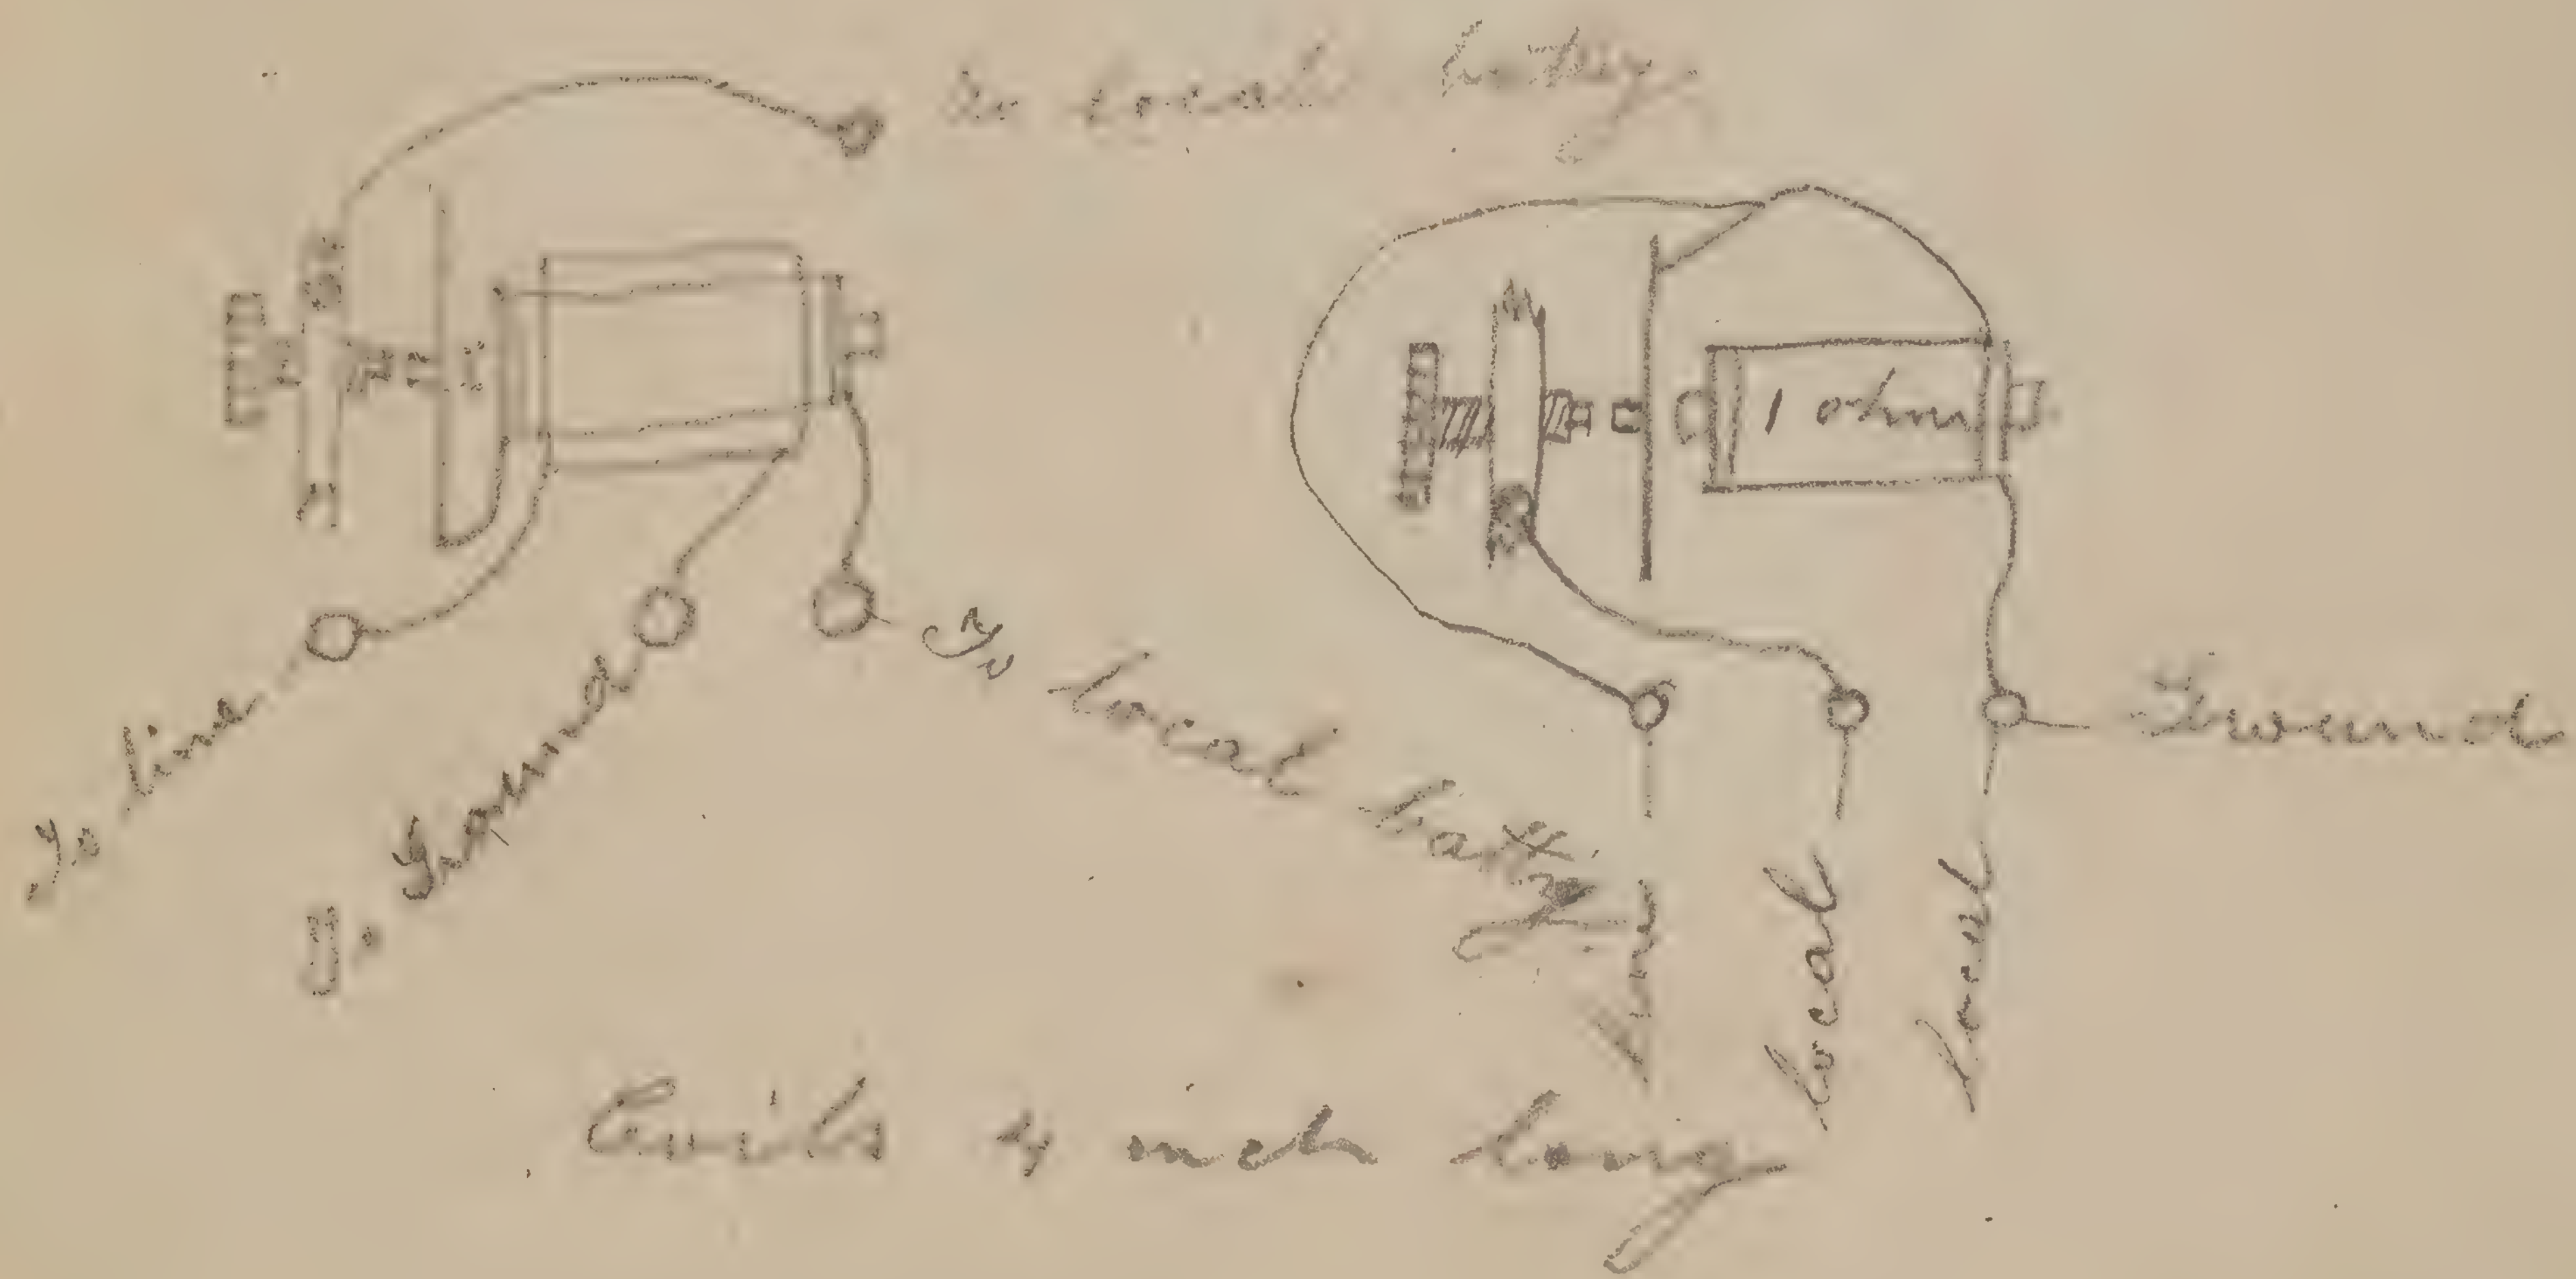 To local batty
1 ohm
To line
To Ground
To local batty
Ground
line
local
local
Coils 4 inch long